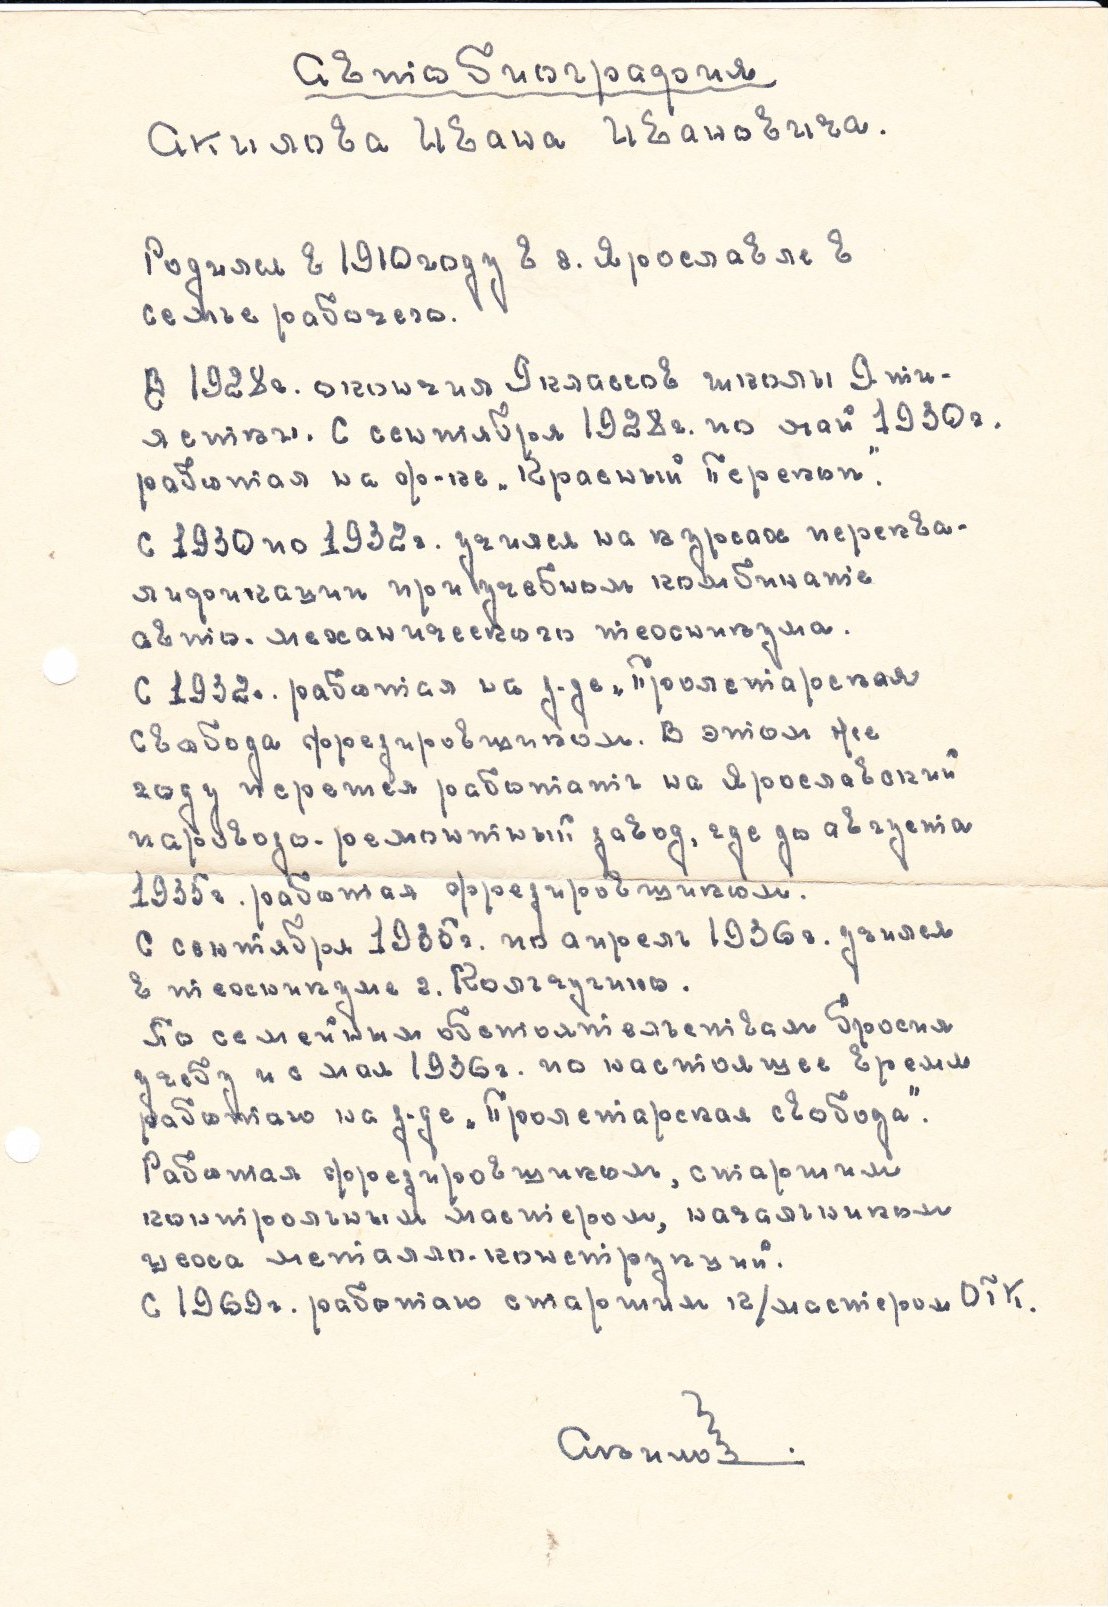 Автобиография
Акилова Ивана Ивановича.
Родился в 1910 году в г. Ярославле в
семье рабочего.
В 1928г. окончил 9 классов школы 9-ти-
летки. С сентября 1928г. по май 1930г.
работал на ф-ке „Красный Перекоп".
С 1930 по 1932г. учился на курсах переква-
лификации при учебном комбинате
авто-механического техникума.
С 1932г. работал на з-де „Пролетарская
свобода фрезеровщиком. В этом же
году перешел работать на Ярославский
паровозо-ремонтный завод, где до августа
1935г. работал фрезеровщиком.
С сентября 1935г. по апрель 1936г. учился
в техникуме г. Кольчугино.
По семейным обстоятельствам бросил
учебу и с мая 1936г. по настоящее время
работаю на з-де „Пролетарская свобода".
Работал фрезеровщиком, старшим
контрольным мастером, начальником
цеха металло-конструкций.
С 1969г. работаю старшим к/мастером ОТК.
Акилов